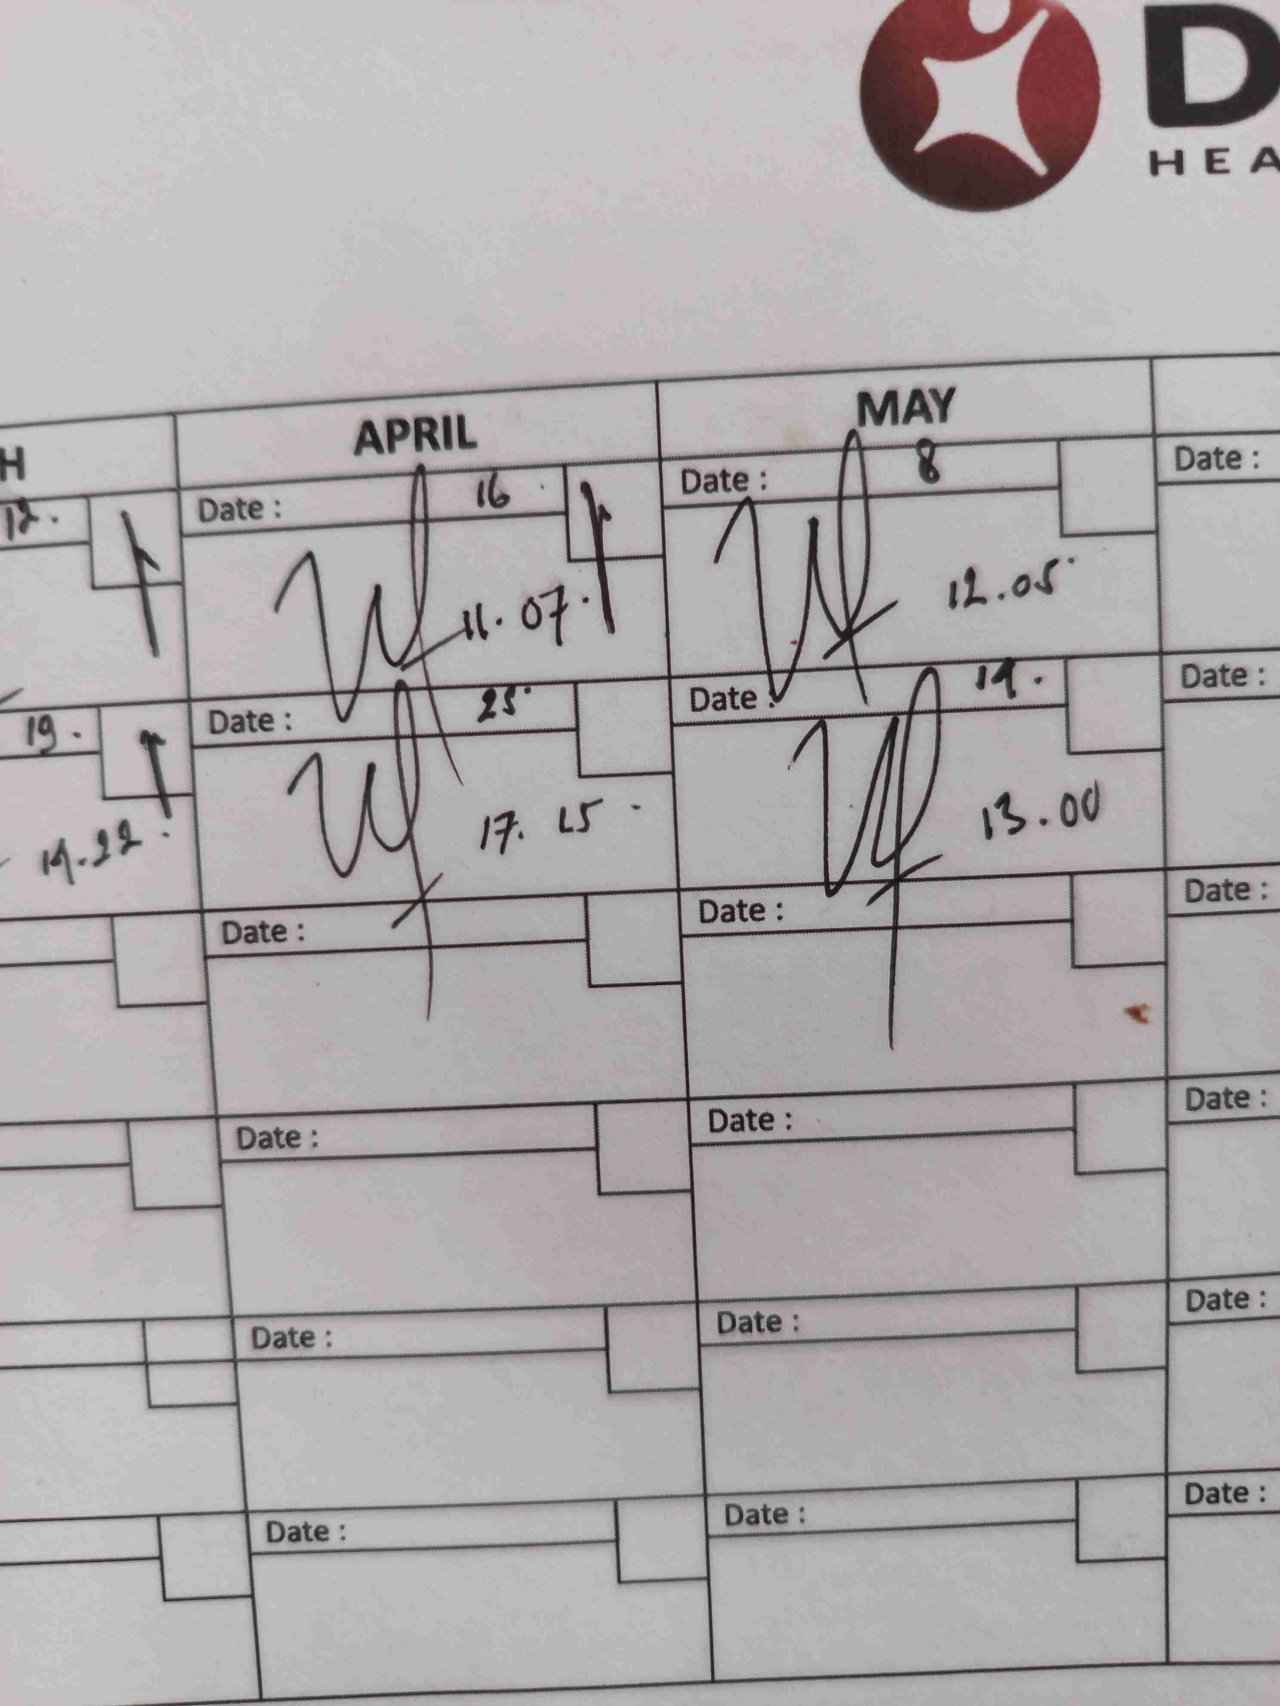 D
HEA
H
APRIL
MAY
12.
Date : 16
Date : 8
Date :
11.07.
12.05
19.
Date : 25
Date :
Date :
14.22
17. 25
13.00
Date :
Date :
Date :
Date :
Date :
Date :
Date :
Date :
Date :
Date :
Date :
Date :